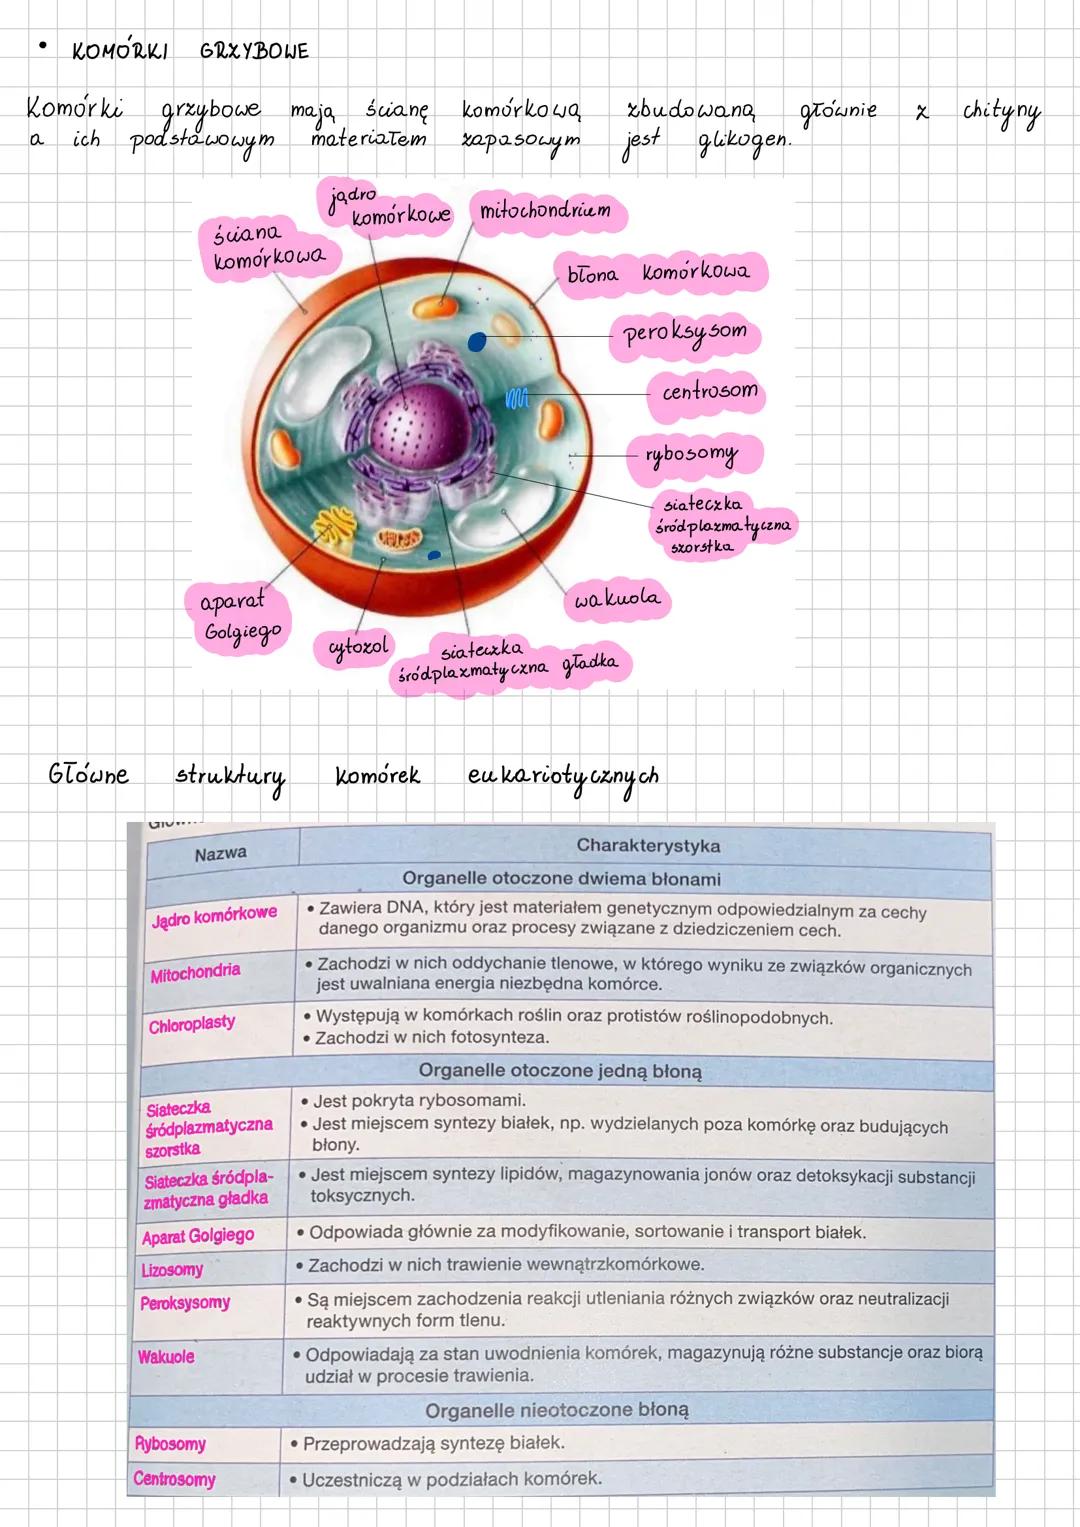 • KOMÓRKI GRZYBOWE
Komórki grzybowe mają ścianę komórkową zbudowaną głównie z chityny
a ich podstawowym materiałem zapasowym jest glikogen.
jądro
komórkowe
mitochondrium
ściana
komórkowa
błona komórkowa
peroksysom
centrosom
rybosomy
siateczka
śródplazmatyczna
szorstka
wakuola
aparat
Golgiego
cytozol
siateczka
śródplazmatyczna gładka
Główne struktury komórek eukariotycznych
Nazwa
Charakterystyka
Organelle otoczone dwiema błonami
Jądro komórkowe
• Zawiera DNA, który jest materiałem genetycznym odpowiedzialnym za cechy
danego organizmu oraz procesy związane z dziedziczeniem cech.
Mitochondria
• Zachodzi w nich oddychanie tlenowe, w którego wyniku ze związków organicznych
jest uwalniana energia niezbędna komórce.
Chloroplasty
• Występują w komórkach roślin oraz protistów roślinopodobnych.
• Zachodzi w nich fotosynteza.
Organelle otoczone jedną błoną
Siateczka
śródplazmatyczna
szorstka
• Jest pokryta rybosomami.
• Jest miejscem syntezy białek, np. wydzielanych poza komórkę oraz budujących
błony.
Siateczka śródpla-
zmatyczna gładka
• Jest miejscem syntezy lipidów, magazynowania jonów oraz detoksykacji substancji
toksycznych.
Aparat Golgiego
• Odpowiada głównie za modyfikowanie, sortowanie i transport białek.
Lizosomy
• Zachodzi w nich trawienie wewnątrzkomórkowe.
Peroksysomy
• Są miejscem zachodzenia reakcji utleniania różnych związków oraz neutralizacji
reaktywnych form tlenu.
Wakuole
• Odpowiadają za stan uwodnienia komórek, magazynują różne substancje oraz biorą
udział w procesie trawienia.
Organelle nieotoczone błoną
Rybosomy
• Przeprowadzają syntezę białek.
Centrosomy
• Uczestniczą w podziałach komórek.